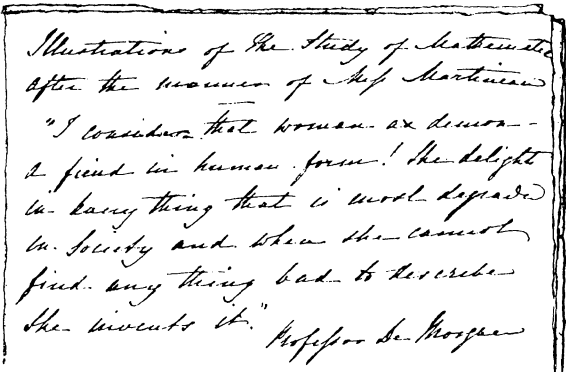 Illustrations of the Study of Mathematic
after the manner of Miss Martineau
"I consider that woman a demon -
a fiend in human form! She delight
in every thing that is most degrade
in Society and when she cannot
find any thing bad to describe
she invents it."
Professor De Morgan